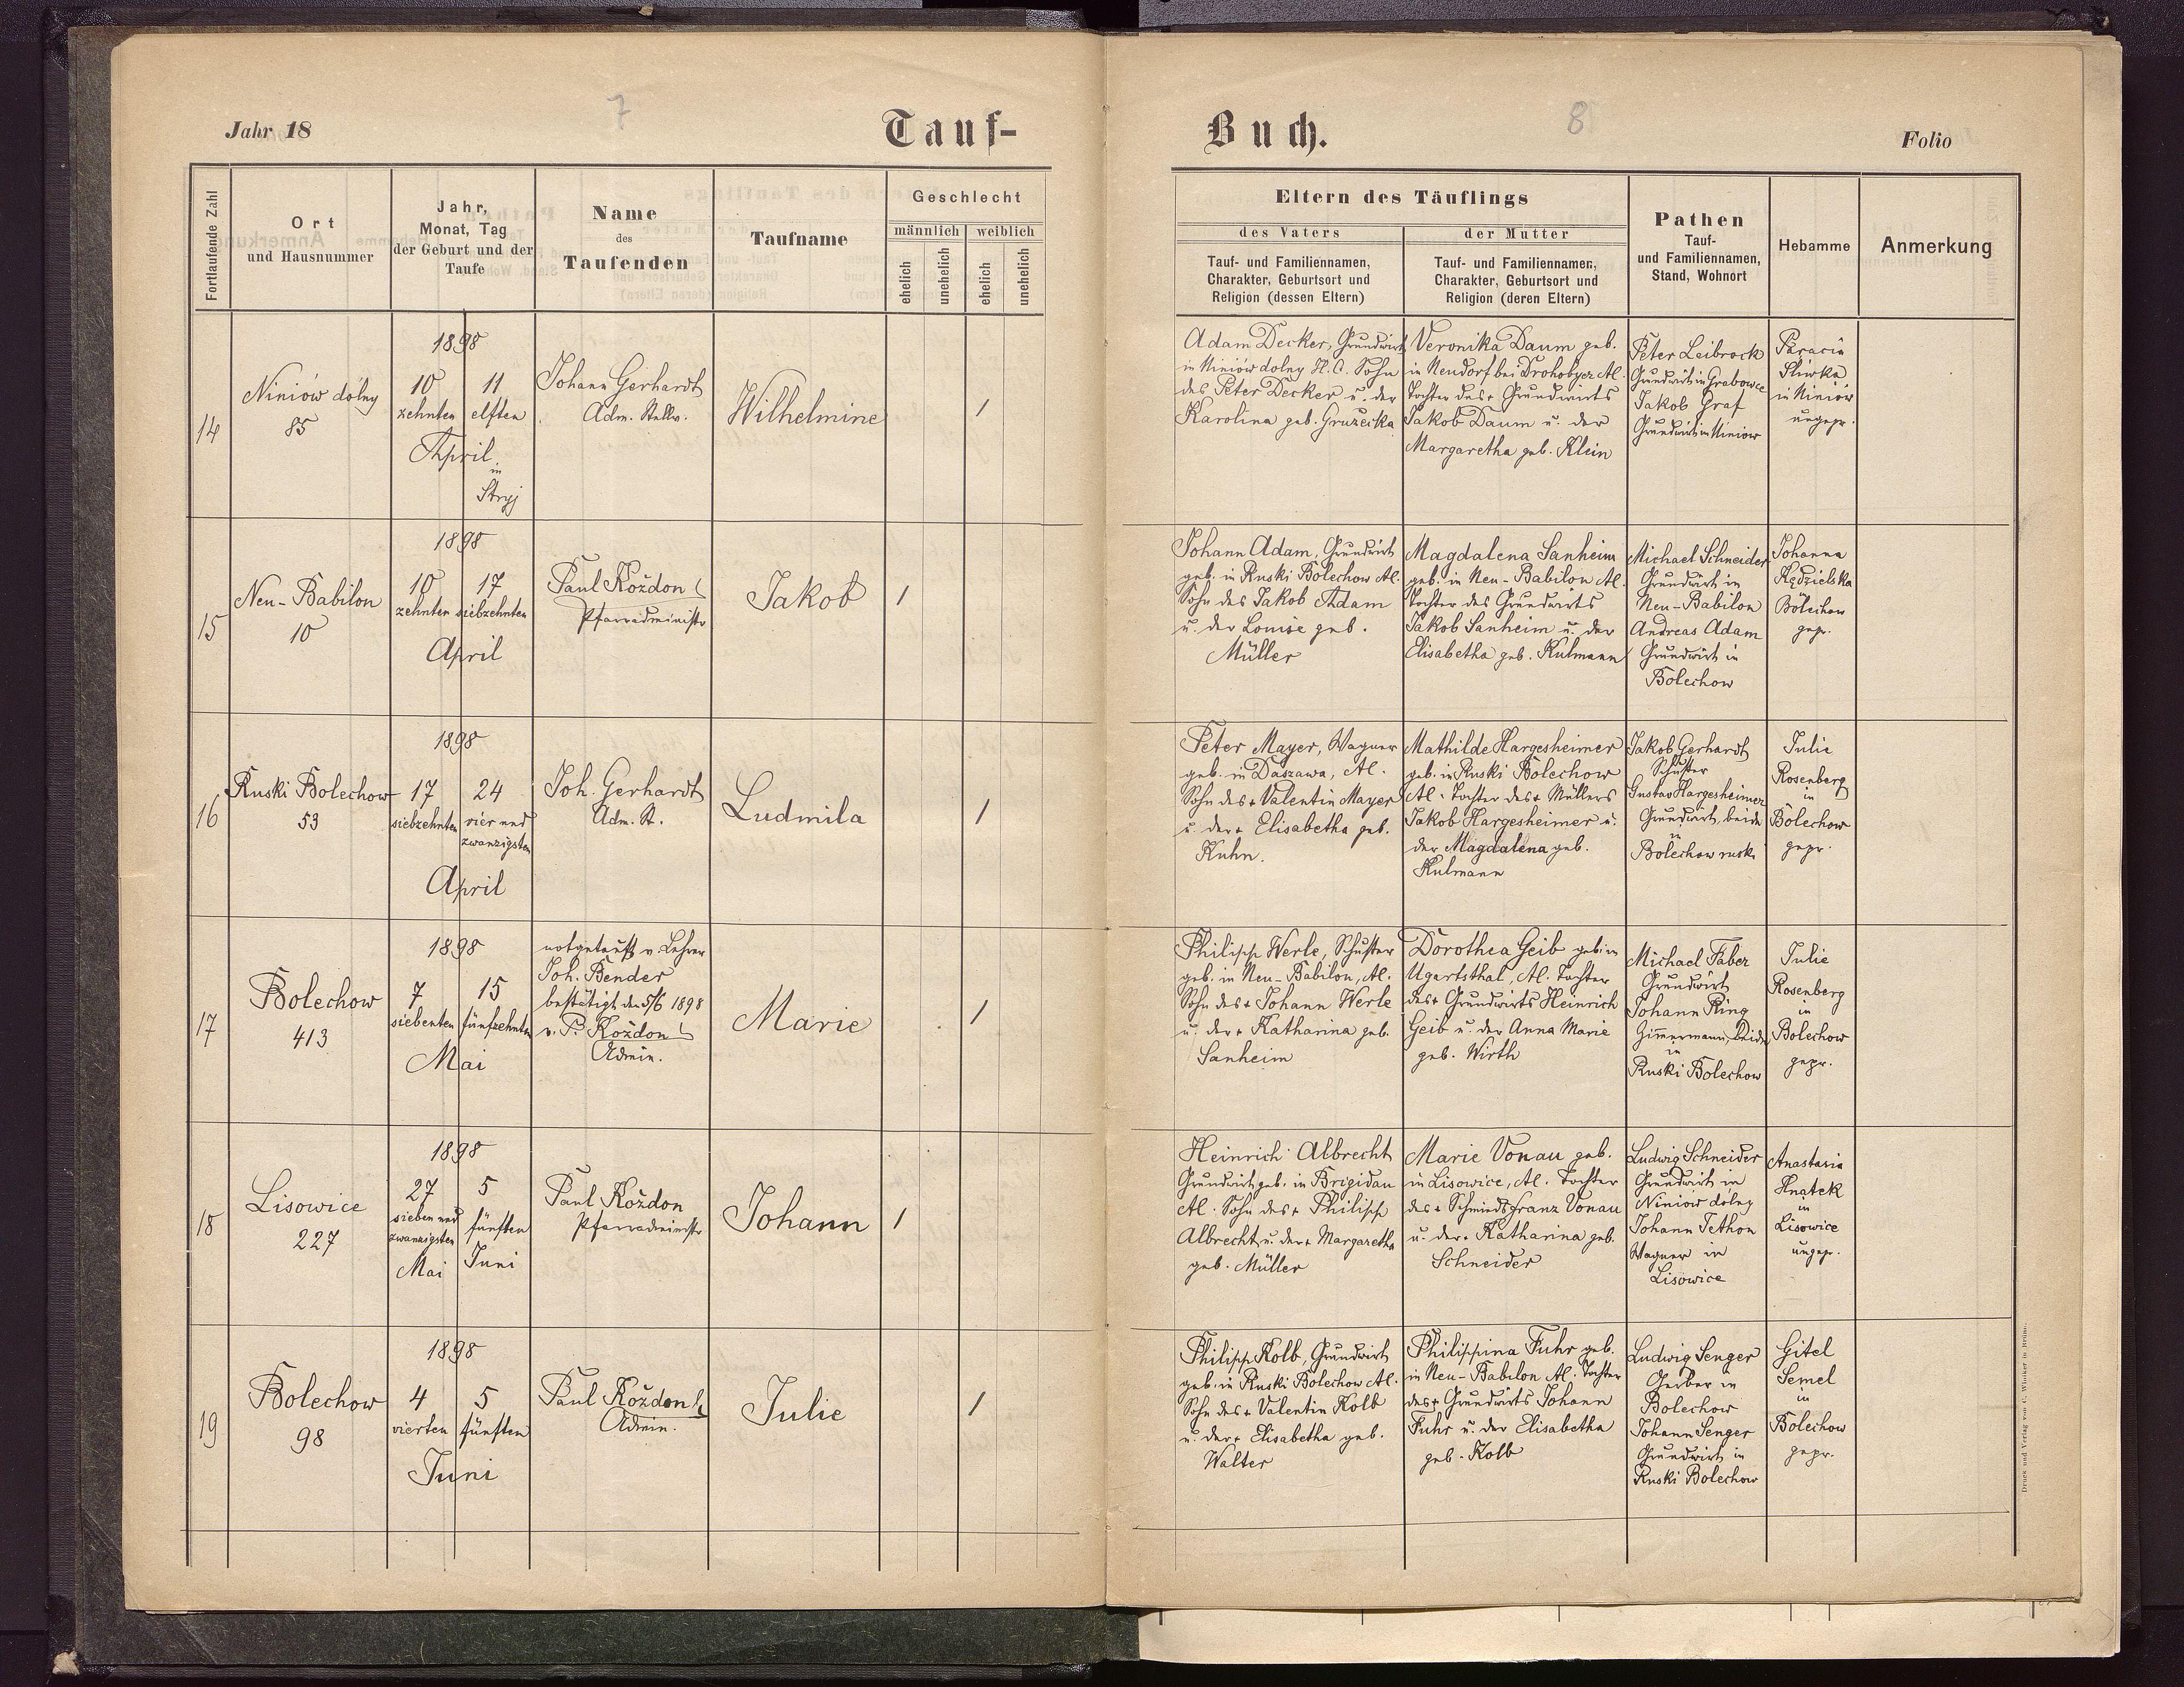 Jahr 18
7
Tauf-
Fortlaufende Zahl
Ort
und Hausnummer
Jahr,
Monat, Tag
der Geburt und der
Taufe
Name
des
Taufenden
Taufname
Geschlecht
männlich
weiblich
ehelich
unehelich
ehelich
unehelich
14
Niniów dolny
85
1898
10 11
zehnten elften
April
in
Stryj
Johann Gerhardt
Adm. Stellv.
Wilhelmine
1
15
Neu-Babilon
10
1898
10 17
zehnten siebzehnten
April
Paul Koždon
Pfarradministr
Jakob
1
16
Ruski Bolechow
53
1898
17 24
siebzehnten vier und
zwanzigsten
April
Joh. Gerhardt
Adm. St.
Ludmila
1
17
Bolechow
413
1898
7 15
siebenten fünfzehnten
Mai
notgetauft v. Lehrer
Joh. Bender
bestätigt den 5/6 1898
v. P. Koždon
Admin.
Marie
1
18
Lisowice
227
1898
27 5
sieben und fünften
zwanzigsten
Mai Juni
Paul Koždon
Pfarradministr
Johann
1
19
Bolechow
98
1898
4 5
vierten fünften
Juni
Paul Koždon
Admin.
Julie
1
Buch.
8
Folio
Eltern des Täuflings
des Vaters
Tauf- und Familiennamen,
Charakter, Geburtsort und
Religion (dessen Eltern)
der Mutter
Tauf- und Familiennamen,
Charakter, Geburtsort und
Religion (deren Eltern)
Pathen
Tauf-
und Familiennamen,
Stand, Wohnort
Hebamme
Anmerkung
Adam Decker, Grundwirt
in Niniów dolny H. C. Sohn
des Peter Decker u. der
Karolina geb. Gružeika
Veronika Daum geb.
in Neudorf bei Drohobycz Al.
Tochter des + Grundwirts
Jakob Daum u. der
Margaretha geb. Klein
Peter Leibrock
Grundwirt in Grabowce
Jakob Graf
Grundwirt in Niniow
Paracia
Sliwka
in Niniów
ungepr.
Johann Adam, Grundwirt
geb. in Ruski Bolechow Al.
Sohn des Jakob Adam
u. der Louise geb.
Müller
Magdalena Sanheim
geb. in Neu-Babilon Al.
Tochter des Grundwirts
Jakob Sanheim u. der
Elisabetha geb. Kulmann
Michael Schneider
Grundwirt in
Neu-Babilon
Andreas Adam
Grundwirt in
Bolechow
Johanna
Kędzielska
Bolechow
gepr.
Peter Mayer, Wagner
geb. in Daszawa, Al.
Sohn des + Valentin Mayer
u. der + Elisabetha geb.
Kuhn.
Mathilde Hargesheimer
geb. in Ruski Bolechow
Al. Tochter des + Müllers
Jakob Hargesheimer u.
der Magdalena geb.
Kulmann
Jakob Gerhardt
Schuster
Gustav Hargesheimer
Grundwirt, beide
in
Bolechow ruski
Julie
Rosenberg
in
Bolechow
gepr.
Philipp Werle, Schuster
geb. in Neu-Babilon, Al.
Sohn des + Johann Werle
u. der + Katharina geb.
Sanheim
Dorothea Geib geb. in
Ugartsthal, Al. Tochter
des + Grundwirts Heinrich
Geib u. der Anna Marie
geb. Wirth
Michael Faber
Grundwirt
Johann Ring
Zimmermann, beide
in
Ruski Bolechow
Julie
Rosenberg
in
Bolechow
gepr.
Heinrich Albrecht
Grundwirt geb. in Brigidau
Al. Sohn des + Philipp
Albrecht u. der + Margaretha
geb. Müller
Marie Vonau geb.
in Lisowice, Al. Tochter
des + Schmieds Franz Vonau
u. der + Katharina geb.
Schneider
Ludwig Schneider
Grundwirt in
Niniów dolny
Johann Tethon
Wagner in
Lisowice
Anastasia
Hnatek
in
Lisowice
ungepr.
Philipp Kolb, Grundwirt
geb. in Ruski Bolechow Al.
Sohn des + Valentin Kolb
u. der + Elisabetha geb.
Walter
Philippina Fuhr geb.
in Neu-Babilon Al. Tochter
des + Grundwirts Johann
Fuhr u. der Elisabetha
geb. Kolb
Ludwig Senger
Gerber in
Bolechow
Johann Senger
Grundwirt in
Ruski Bolechow
Gitel
Semel
in
Bolechow
gepr.
Druck und Verlag von C. Winiker in Brünn.